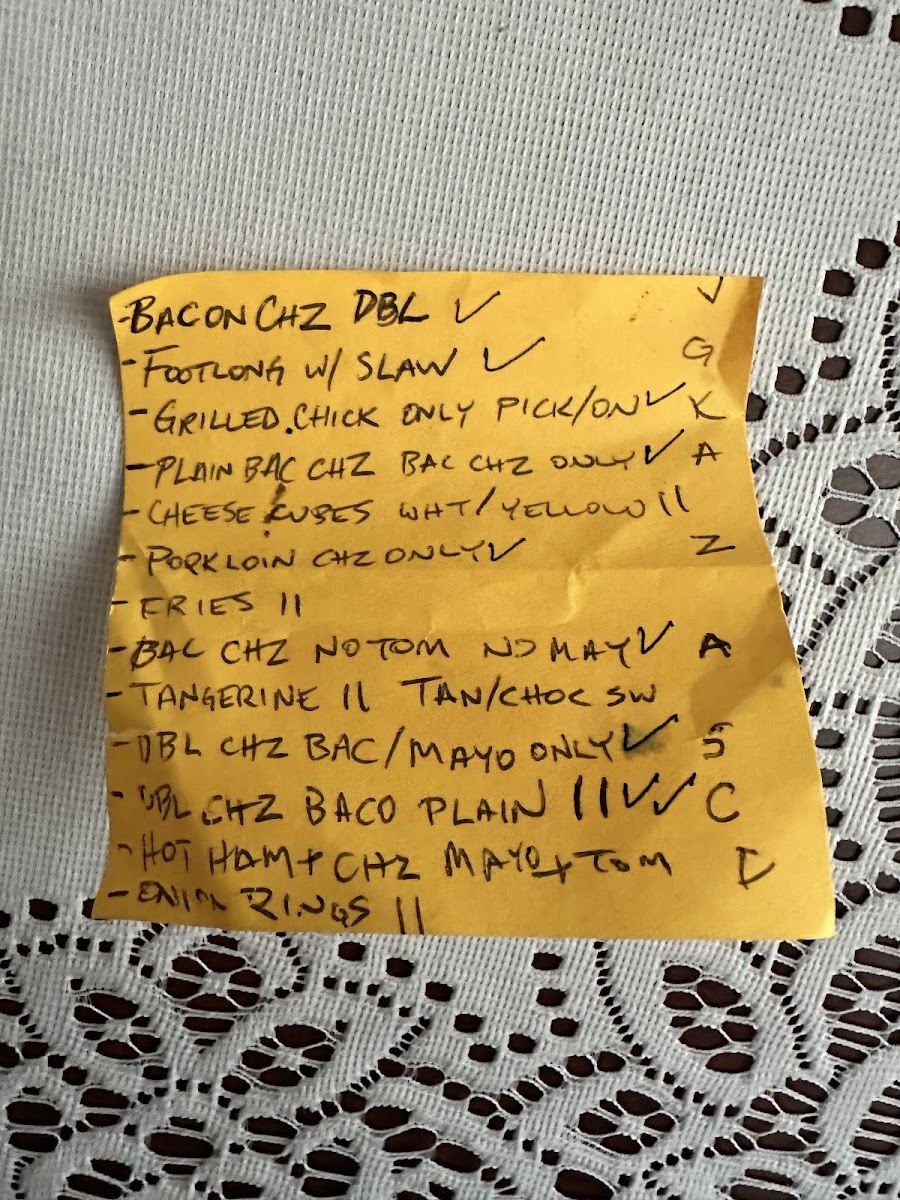 -BACON CHZ DBL ✓ J
-FOOTLONG W/ SLAW ✓ G
-GRILLED.CHICK ONLY PICK/ON✓ K
-PLAIN BAC CHZ BAC CHZ ONLY✓ A
-CHEESE CUBES WHT/YELLOW II
-PORKLOIN CHZ ONLY✓ Z
-FRIES II
-BAC CHZ NO TOM NO MAY✓ A
-TANGERINE II TAN/CHOC SW
-DBL CHZ BAC/MAYO ONLY✓ S
-DBL CHZ BACO PLAIN II✓✓ C
-HOT HAM+CHZ MAYO+TOM D
-ONION RINGS II